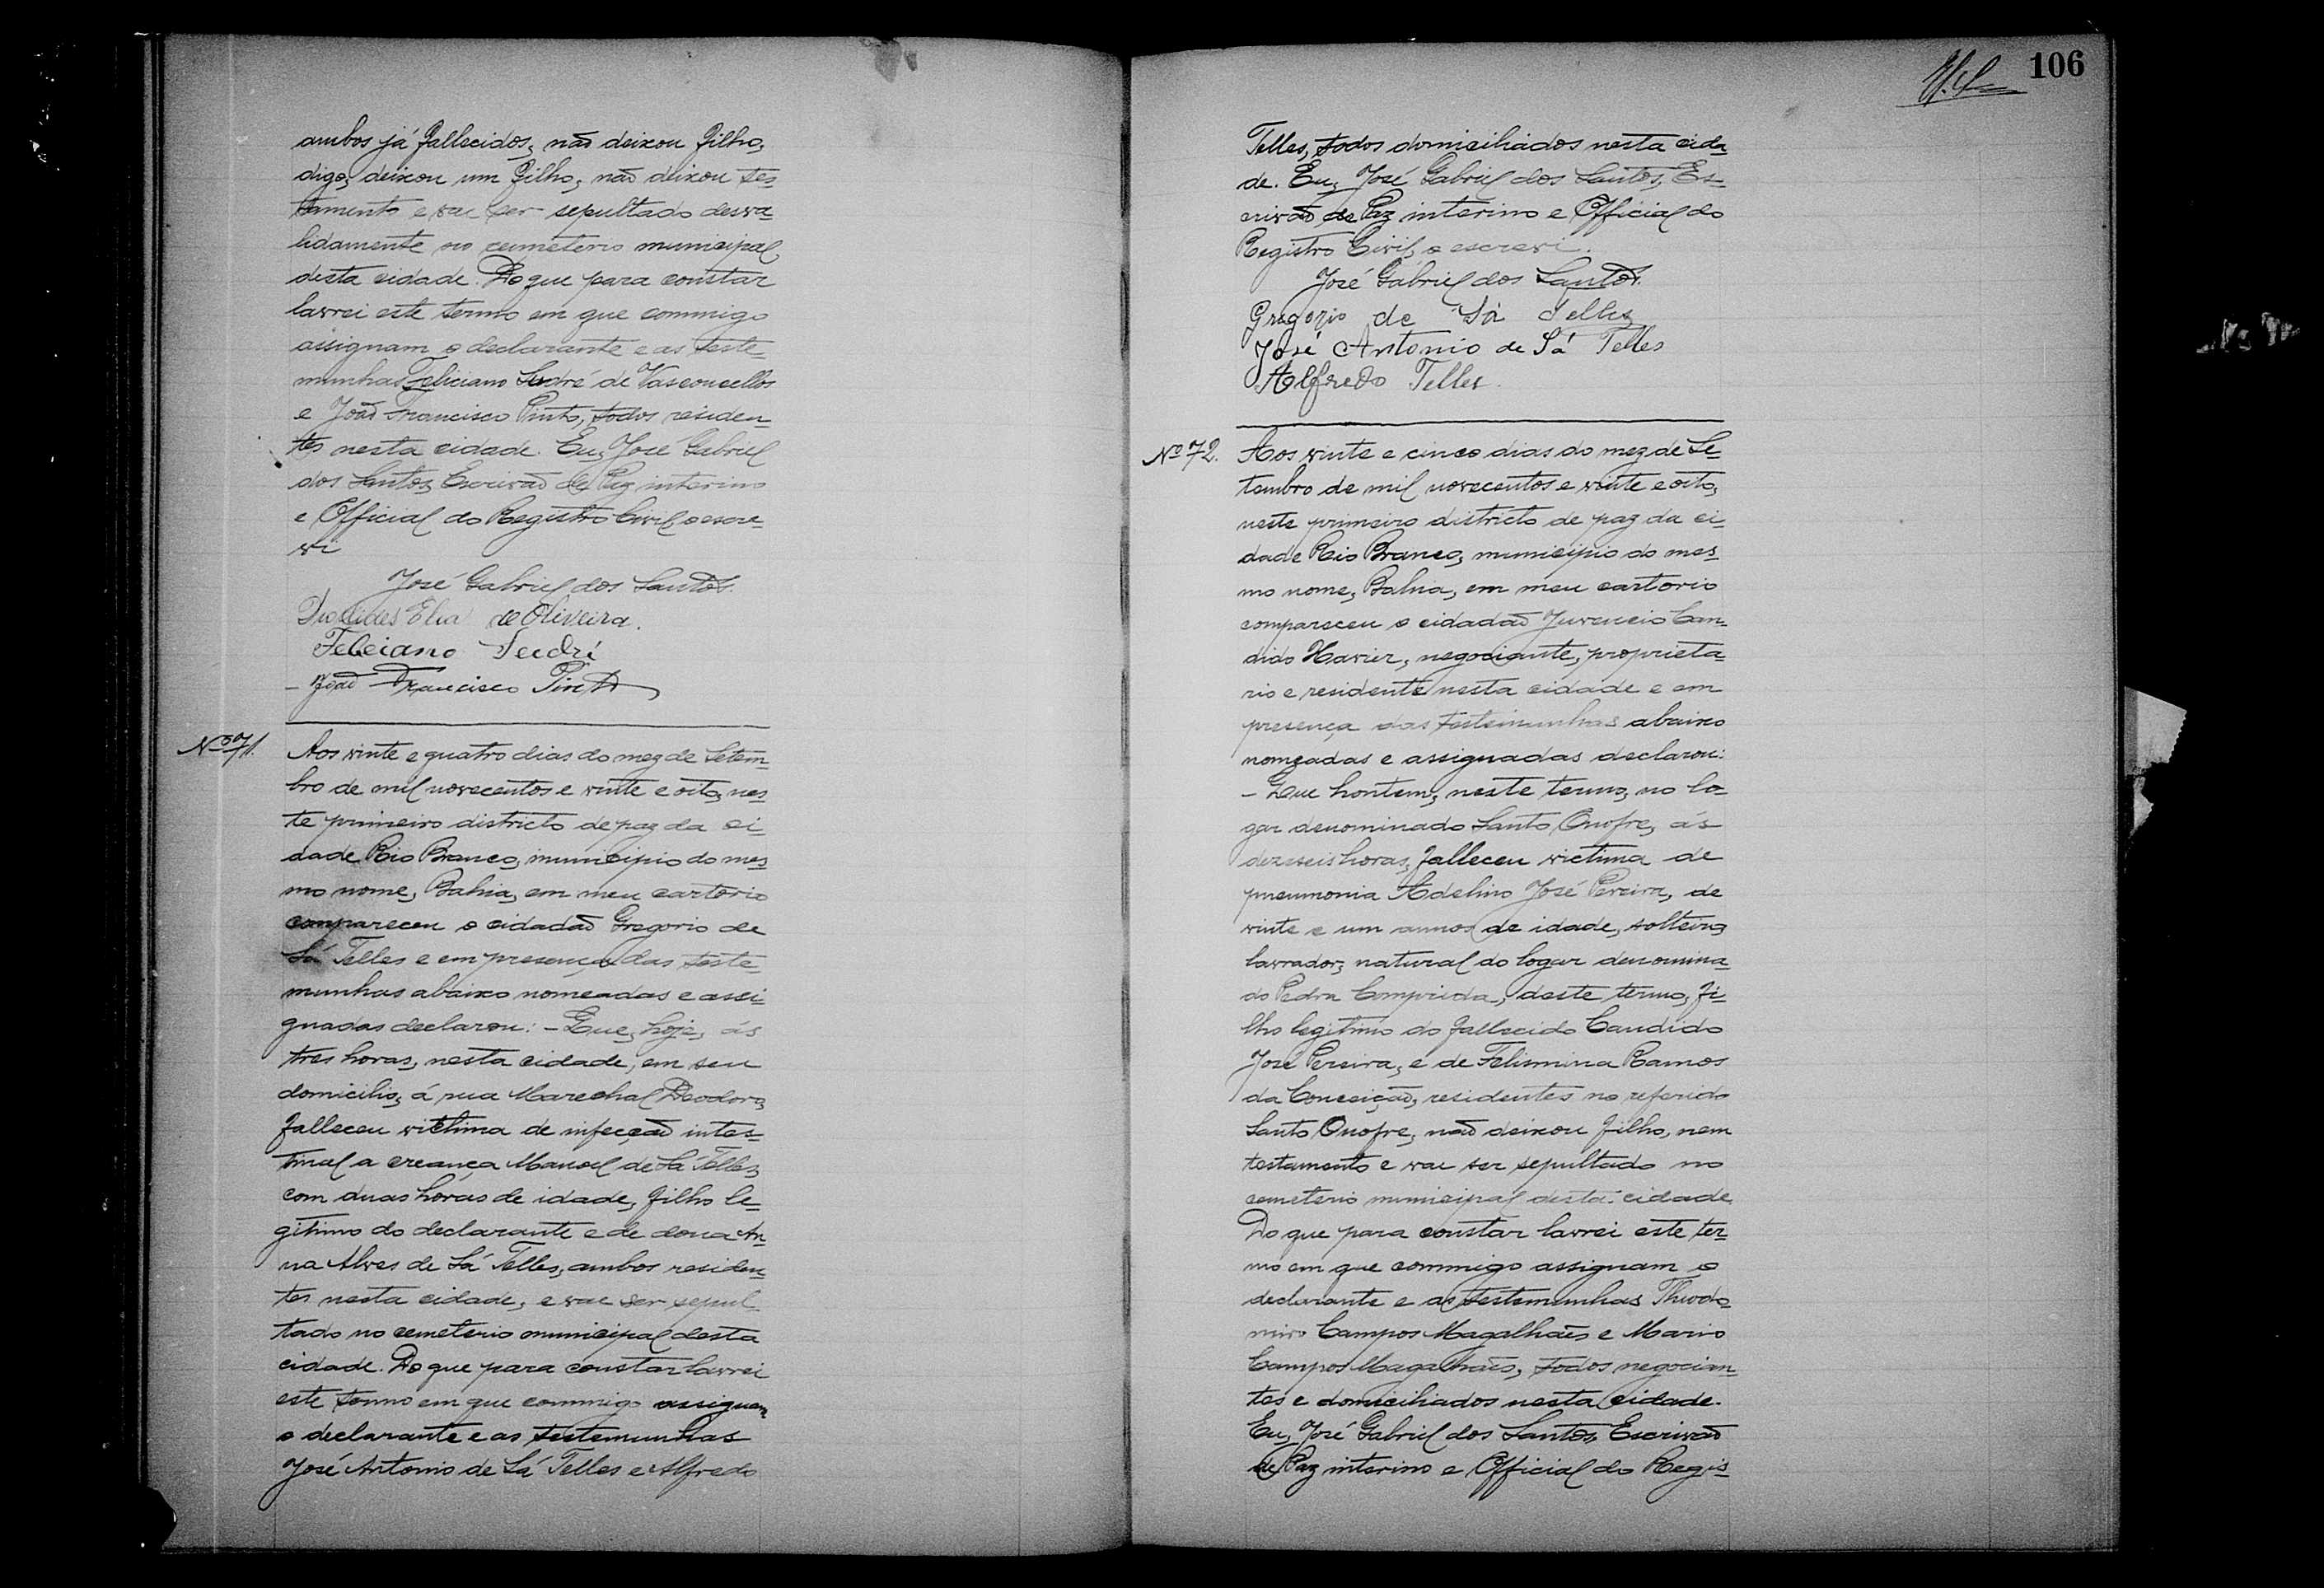 ambos já fallecidos, não deixou filho,
digo, deixou um filho, não deixou tes-
tamento e vae ser sepultado desva-
lidamente no cemeterio municipal
desta cidade. Do que para constar
lavrei este termo em que commigo
assignam o declarante e as teste-
munhas Feliciano Sudré de Vasconcellos
e João Francisco Pinto, todos residen-
tes nesta cidade. Eu, José Gabriel
dos Santos, Escrivão de Paz interino
e Official do Registro Civil, o escre-
vi
José Gabriel dos Santos.
de Oliveira.
Feliciano Sudré
João Francisco Pinto
Nº 71.
Aos vinte e quatro dias do mez de Setem-
bro de mil novecentos e vinte e oito, nes-
te primeiro districto de paz da ci-
dade Rio Branco, municipio do mes-
mo nome, Bahia, em meu cartorio
compareceu o cidadão Gregorio de
Sá Telles e em presença das teste-
munhas abaixo nomeadas e assi-
gnadas declarou: - Que, hoje, ás
tres horas, nesta cidade, em seu
domicilio, á rua Marechal Deodoro,
falleceu victima de infecção intes-
tinal a creança Manoel de Sá Telles,
com duas horas de idade, filho le-
gitimo do declarante e de dona An-
na Alves de Sá Telles, ambos residen-
tes nesta cidade, e vae ser sepul-
tado no cemeterio municipal desta
cidade. Do que para constar lavrei
este termo em que commigo assignam
o declarante e as testemunhas
José Antonio de Sá Telles e Alfredo
106
Telles, todos domiciliados nesta cida-
de. Eu, José Gabriel dos Santos, Es-
crivão de Paz interino e Official do
Registro Civil, o escrevi.
José Gabriel dos Santos.
Gregorio de Sá Telles
José Antonio de Sá Telles
Alfredo Telles.
Nº 72.
Aos vinte e cinco dias do mez de Se-
tembro de mil novecentos e vinte e oito,
neste primeiro districto de paz da ci-
dade Rio Branco, municipio do mes-
mo nome, Bahia, em meu cartorio
compareceu o cidadão Juvencio Can-
dido Xavier, negociante, proprieta-
rio e residente nesta cidade e em
presença das testemunhas abaixo
nomeadas e assignadas declarou:
- Que hontem, neste termo, no lo-
gar denominado Santo Onofre, ás
dezeseis horas, falleceu victima de
pneumonia Adelino José Pereira, de
vinte e um annos de idade, solteiro,
lavrador, natural do logar denomina-
do Pedra Comprida, deste termo, fi-
lho legitimo do fallecido Candido
José Pereira, e de Felismina Ramos
da Conceição, residentes no referido
Santo Onofre, não deixou filho, nem
testamento e vae ser sepultado no
cemeterio municipal desta cidade.
Do que para constar lavrei este ter-
mo em que commigo assignam o
declarante e as testemunhas Theodo-
miro Campos Magalhães e Mario
Campos Magalhães, todos negocian-
tes e domiciliados nesta cidade.
Eu, José Gabriel dos Santos, Escrivão
de Paz interino e Official do Regis-